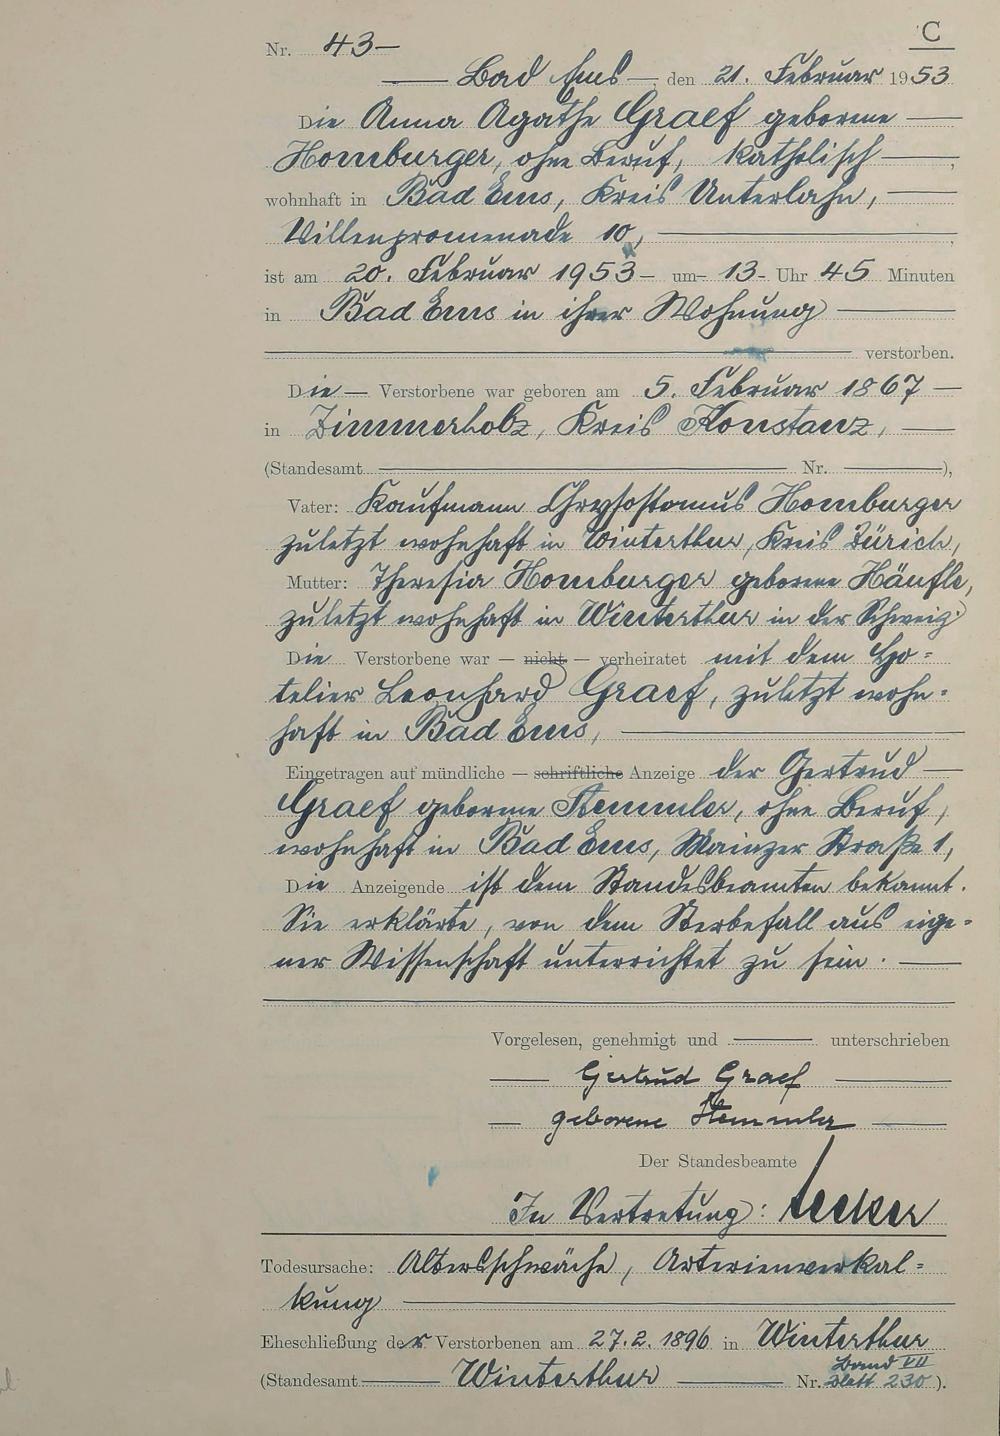 C
Nr. 43
Bad Ems, den 21. Februar 1953
Die Anna Agathe Graef geborene
Homburger, ohne Beruf, katholisch,
wohnhaft in Bad Ems, Kreis Unterlahn,
Villenpromenade 10,
ist am 20. Februar 1953 um 13 Uhr 45 Minuten
in Bad Ems in ihrer Wohnung
verstorben.
Die Verstorbene war geboren am 5. Februar 1867
in Zimmerholz, Kreis Konstanz,
(Standesamt Nr. ),
Vater: Kaufmann Chrysostomus Homburger
zuletzt wohnhaft in Winterthur, Kreis Zürich,
Mutter: Theresia Homburger geborene Häufle,
zuletzt wohnhaft in Winterthur in der Schweiz
Die Verstorbene war — nicht — verheiratet mit dem Ho=
telier Leonhard Graef, zuletzt wohn=
haft in Bad Ems,
Eingetragen auf mündliche — schriftliche Anzeige der Gertrud
Graef geborene Stemmler, ohne Beruf,
wohnhaft in Bad Ems, Mainzer Straße 1,
Die Anzeigende ist dem Standesbeamten bekannt.
Sie erklärte, von dem Sterbefall aus eige=
ner Wissenschaft unterrichtet zu sein.
Vorgelesen, genehmigt und unterschrieben
Gertrud Graef
geborene Stemmler
Der Standesbeamte
In Vertretung:
Todesursache: Altersschwäche, Arterienverkal=
kung
Eheschließung der Verstorbenen am 27.2.1896 in Winterthur
Band VII
(Standesamt Winterthur Nr. Blatt 230).